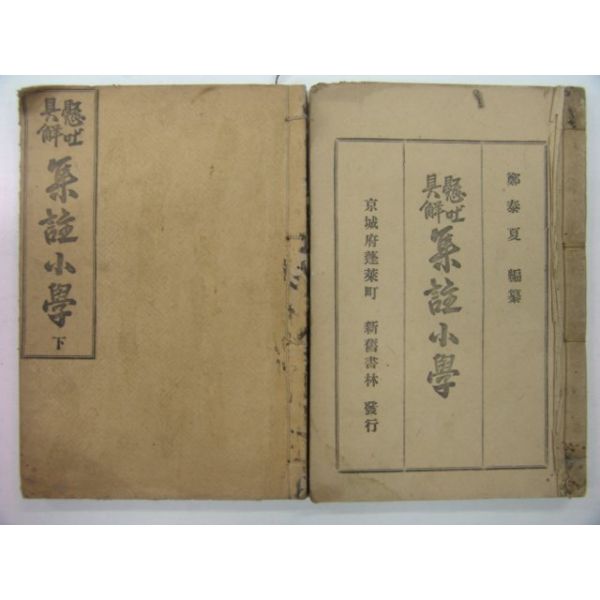 懸吐
具解
集註小學
下
鄭泰夏 編纂
懸吐
具解
集註小學
京城府蓬萊町 新舊書林 發行